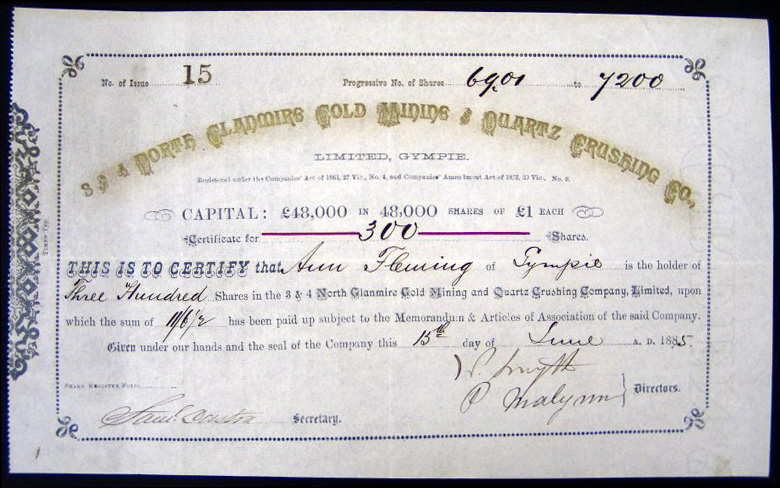 No. of Issue 15 Progressive No. of Shares 6901 to 7200
3 & 4 North Glanmire Gold Mining & Quartz Crushing Co.,
LIMITED, GYMPIE.
Registered under the Companies' Act of 1863, 27 Vic., No. 4, and Companies' Amendment Act of 1875, 39 Vic., No. 9.
CAPITAL: £43,000 IN 43,000 SHARES OF £1 EACH
Certificate for 300 Shares.
THIS IS TO CERTIFY that Ann Fleming of Gympie is the holder of
Three Hundred Shares in the 3 & 4 North Glanmire Gold Mining and Quartz Crushing Company, Limited, upon
which the sum of 11/6½ has been paid up subject to the Memorandum & Articles of Association of the said Company.
Given under our hands and the seal of the Company this 15th day of June A. D. 1885.
Smyth
Directors.
SHARE REGISTER FOLIO
Secretary.
Times Typ.